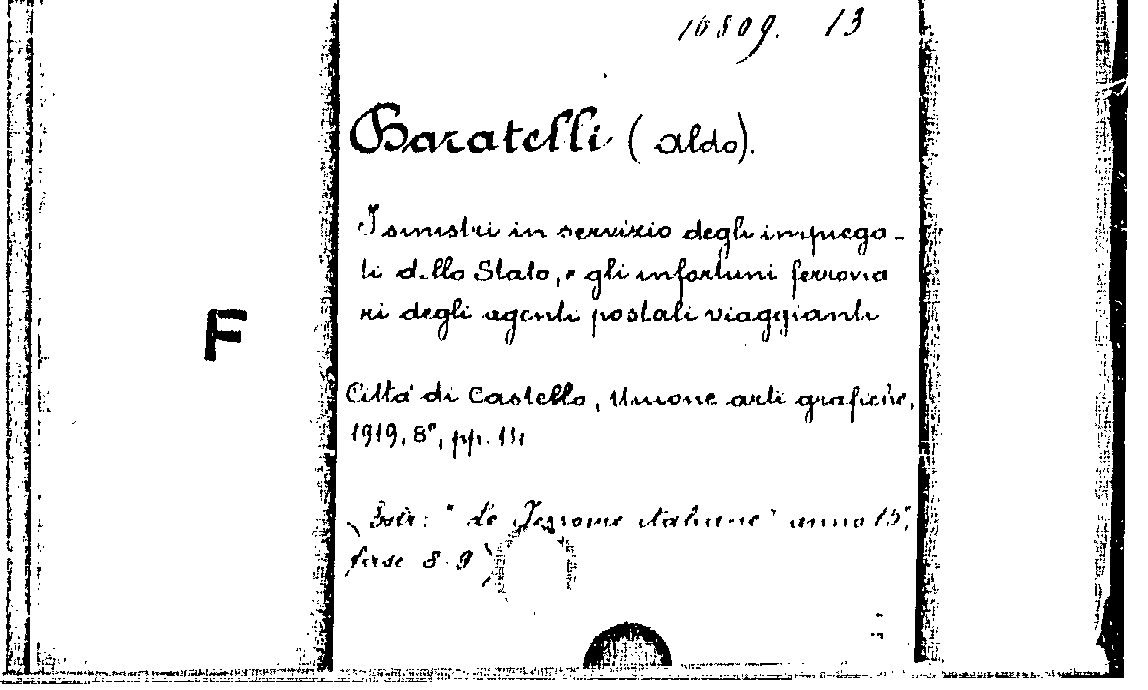 10809. 13
Baratelli (Aldo).
I sinistri in servizio degli impiega-
ti dello Stato, e gli infortuni ferrovia
ri degli agenti postali viaggianti
F
Città di Castello, Unione arti grafiche,
1919, 8°, pp.
Estr: "Le Ferrovie italiane" anno 15°,
fasc 8-9)